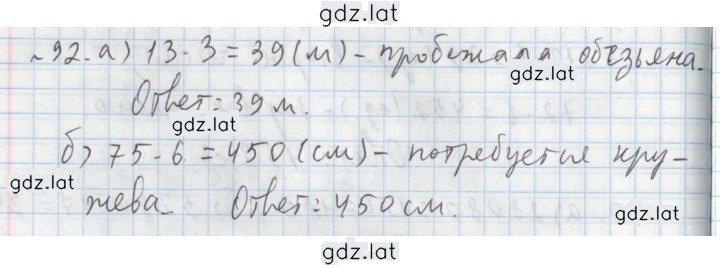 gdz.lat
№92. а) 13·3=39(м) – пробежала обезьяна.
gdz.lat
Ответ: 39 м.
gdz.lat
б) 75·6=450(см) – потребуется кру-
gdz.lat
жева. Ответ: 450 см.
gdz.lat
gdz.lat